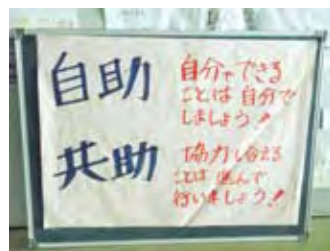 自助
自分でできる
ことは自分で
しましょう!
共助
協力し合える
ことは進んで
行いましょう!